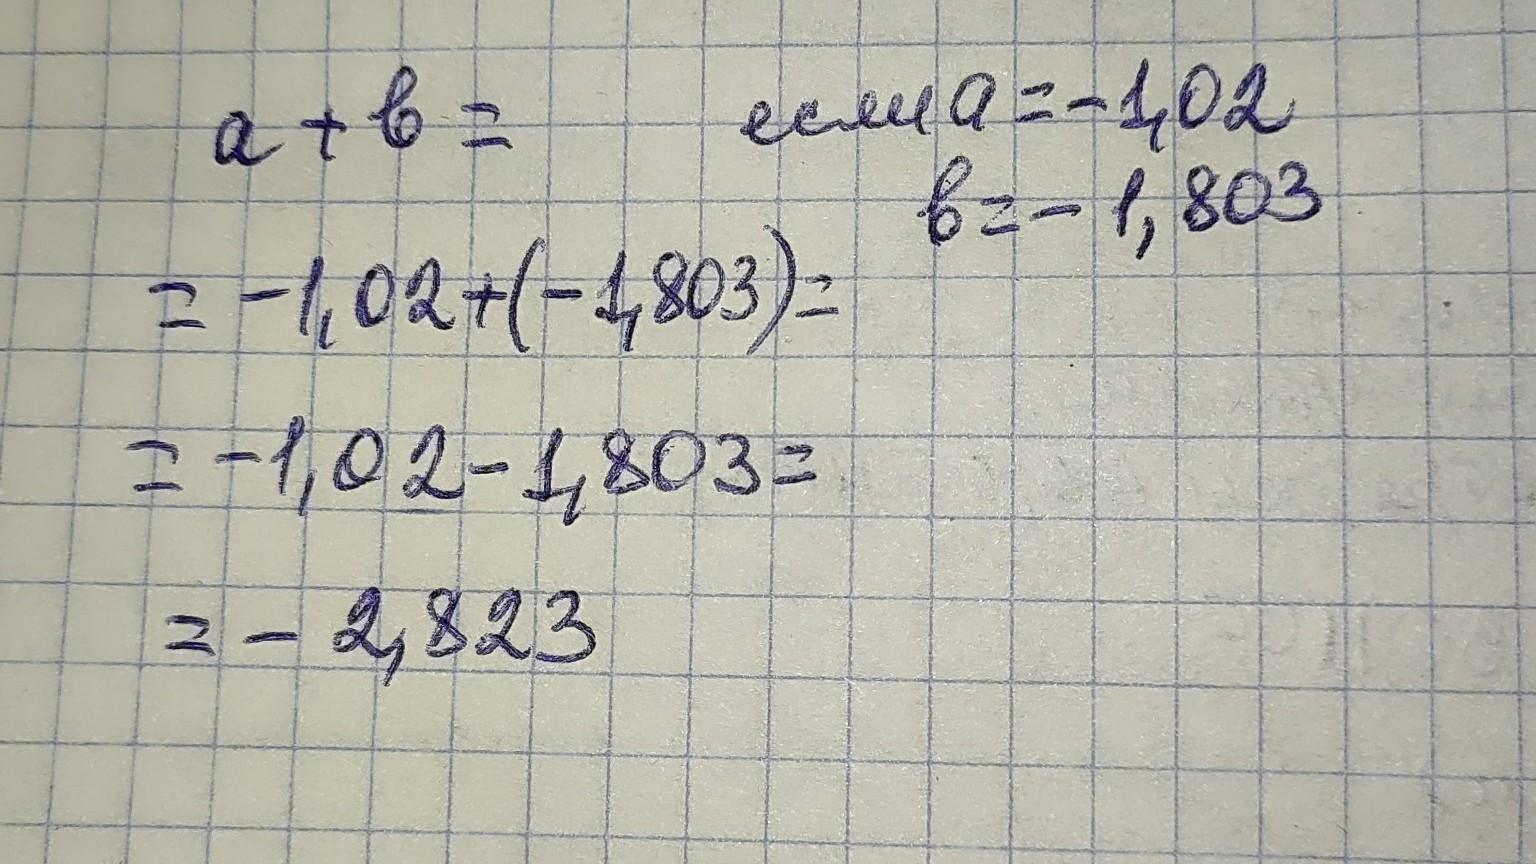 a + b = если a = -1,02
b = - 1,803
= -1,02 + (-1,803) =
= -1,02 - 1,803 =
= - 2,823